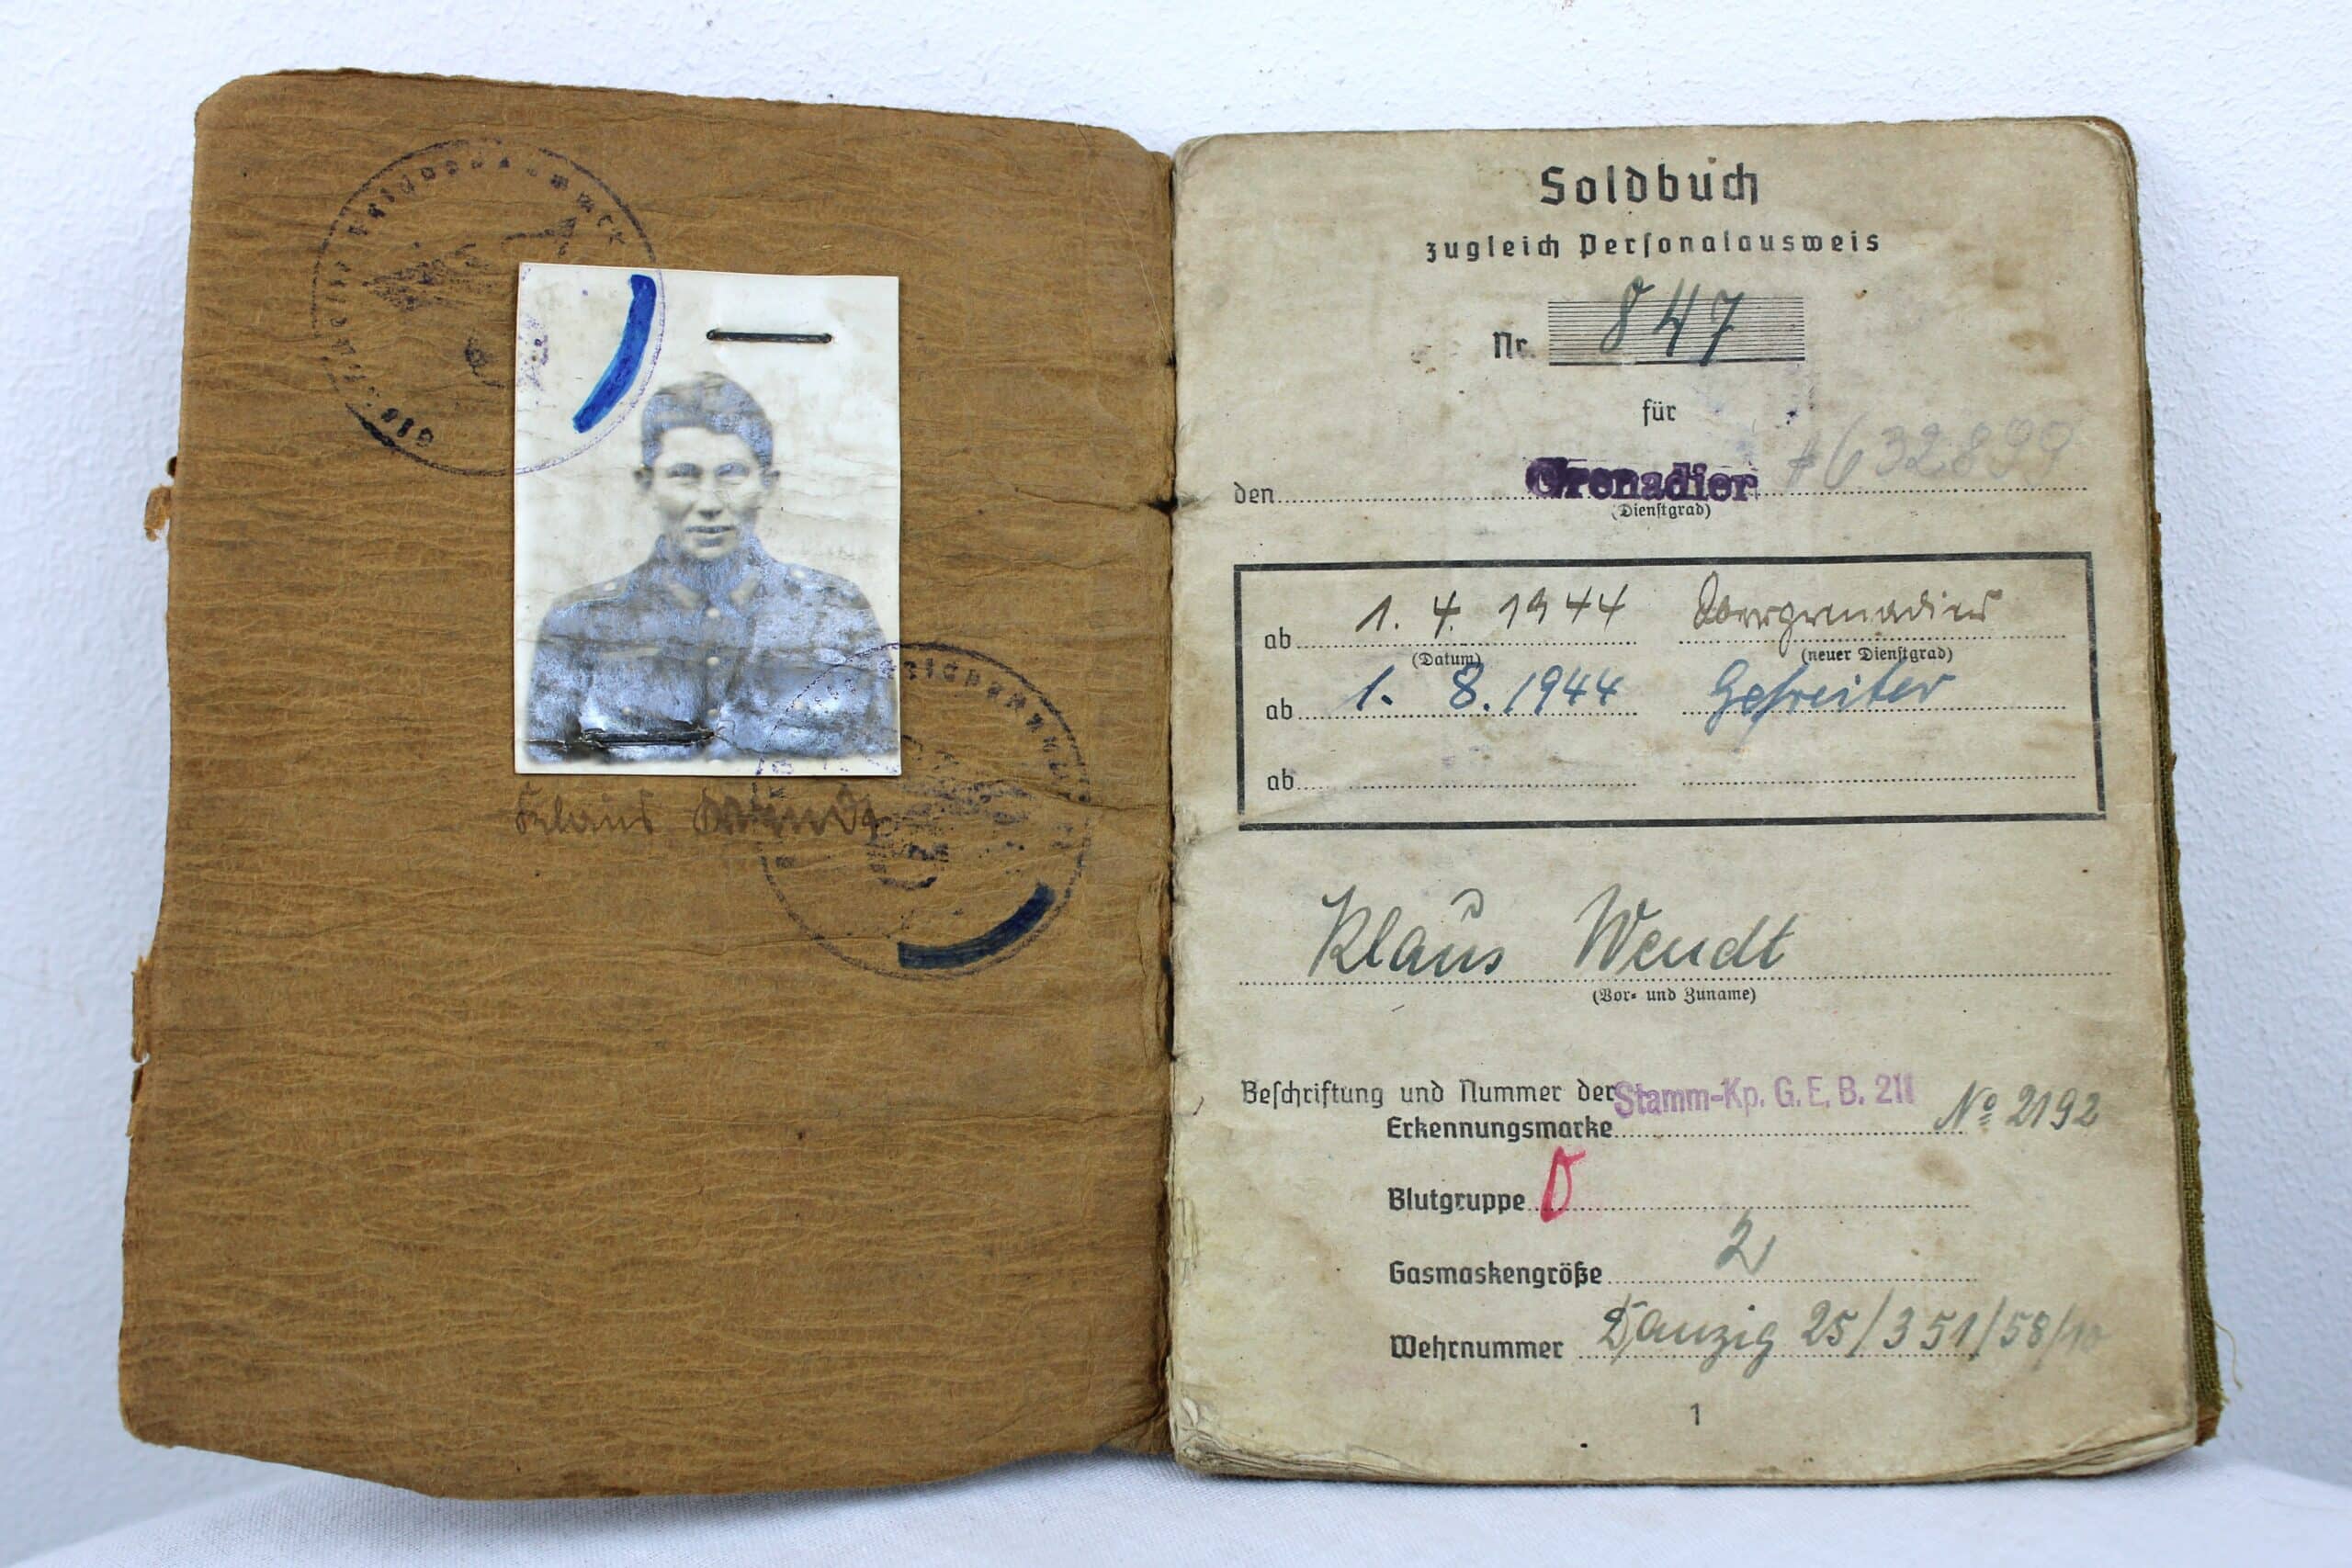 Klaus Wendt
Soldbuch
zugleich Personalausweis
Nr. 847
für
den Grenadier #632899
(Dienstgrad)
ab 1. 4. 1944 Obergrenadier
(Datum) (neuer Dienstgrad)
ab 1. 8. 1944 Gefreiter
ab
Klaus Wendt
(Vor- und Zuname)
Beschriftung und Nummer der Stamm-Kp. G. E. B. 211 No 2192
Erkennungsmarke
Blutgruppe O
Gasmaskengröße 2
Wehrnummer Danzig 25/351/58/10
1